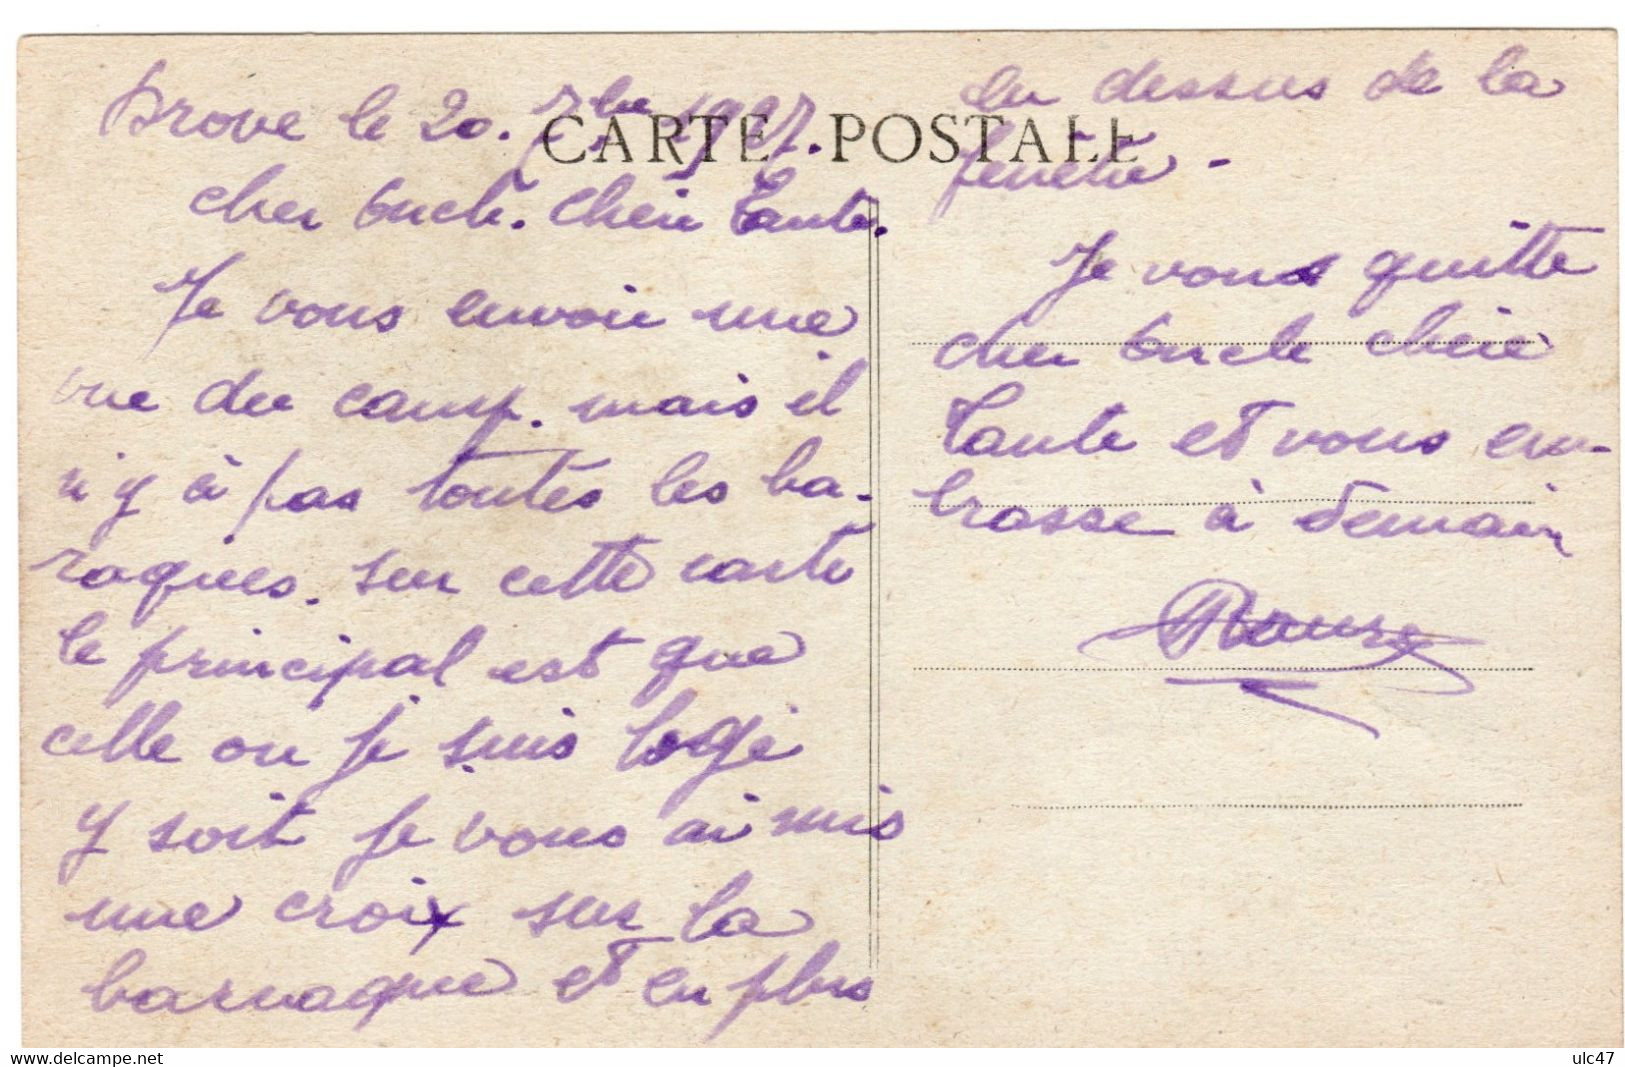 Drove le 20. 7bre 1927.
CARTE POSTALE
cher Oncle. Chere Tante.
Je vous envoie une
vue du camp. mais il
n'y à pas toutes les ba-
raques. sur cette carte
le principal est que
celle ou je suis logé
y soit je vous ai mis
une croix sur la
barraque et en plus
du dessus de la
fenetre -
Je vous quitte
cher Oncle chère
Tante et vous em-
brasse à demain
www.delcampe.net
ulc47